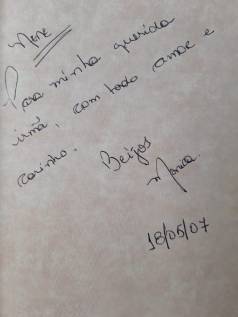 Nene
Para minha querida
irmã, com todo amor e
carinho.
Beijos
Monica.
18/05/07